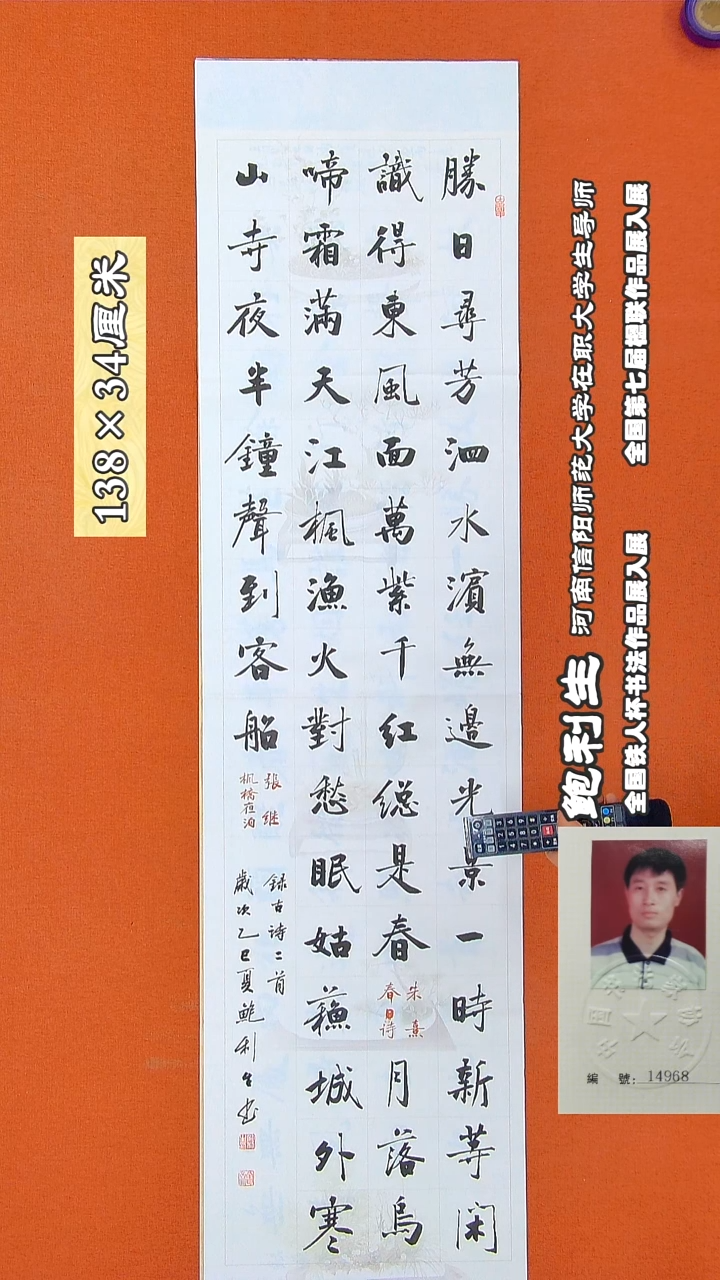 勝日尋芳泗水濱無邊光景一時新等闲
識得東風面萬紫千红總是春
朱熹
春日诗
月落烏
啼霜滿天江楓漁火對愁眠姑蘓城外寒
山寺夜半鐘聲到客船
張继
楓橋夜泊
録古诗二首
歲次乙巳夏鲍利生书
138×34厘米
鲍利生
河南信阳师范大学在职大学生导师
全国铁人杯书法作品展入展
全国第七届楹联作品展入展
編號：14968